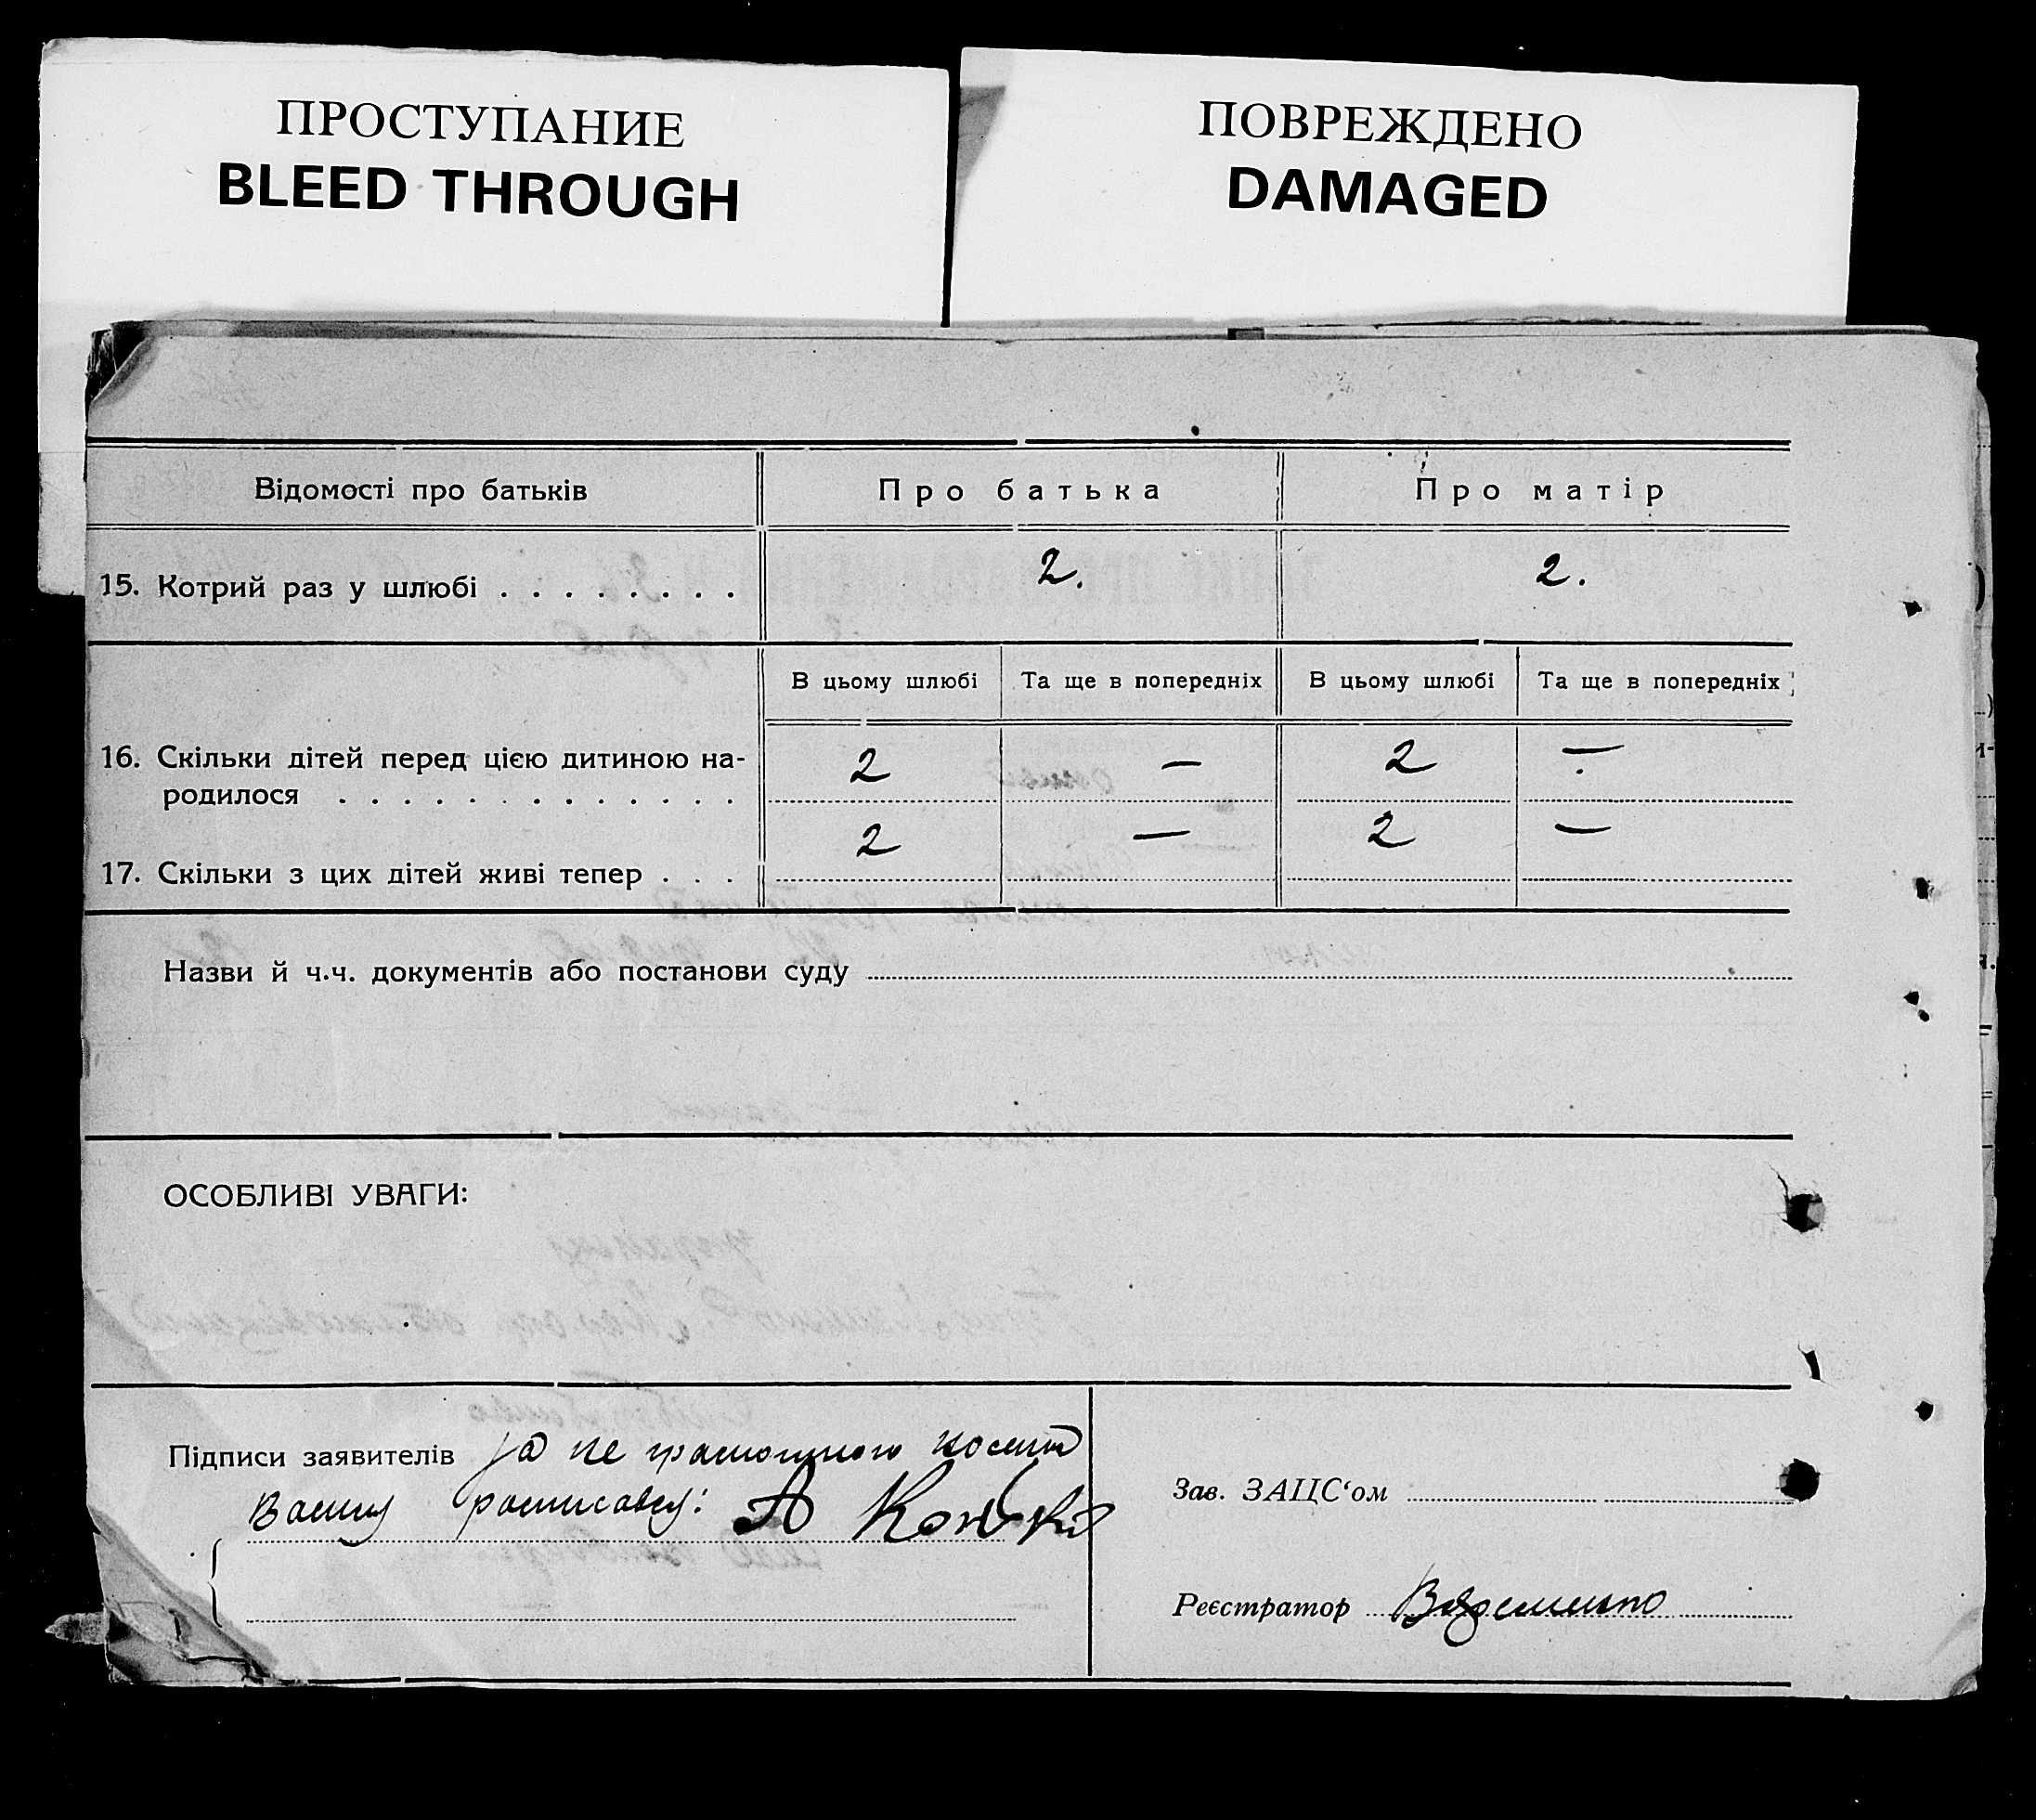 ПРОСТУПАНИЕ
BLEED THROUGH
ПОВРЕЖДЕНО
DAMAGED
Відомості про батьків Про батька Про матір
15. Котрий раз у шлюбі . . . . . . . . 2. 2.
В цьому шлюбі Та ще в попередніх В цьому шлюбі Та ще в попередніх
16. Скільки дітей перед цією дитиною на- 2 — 2 —
родилося . . . . . . . . . . . . .
17. Скільки з цих дітей живі тепер . . . 2 — 2 —
Назви й ч.ч. документів або постанови суду
ОСОБЛИВІ УВАГИ:
Підписи заявителів за не грамотного
росписався: А
Зав. ЗАЦС‘ом
Реєстратор